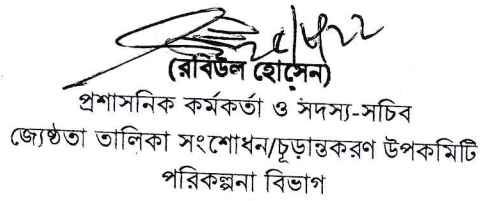 (রবিউল হোসেন)
প্রশাসনিক কর্মকর্তা ও সদস্য-সচিব
জ্যেষ্ঠতা তালিকা সংশোধন/চূড়ান্তকরণ উপকমিটি
পরিকল্পনা বিভাগ